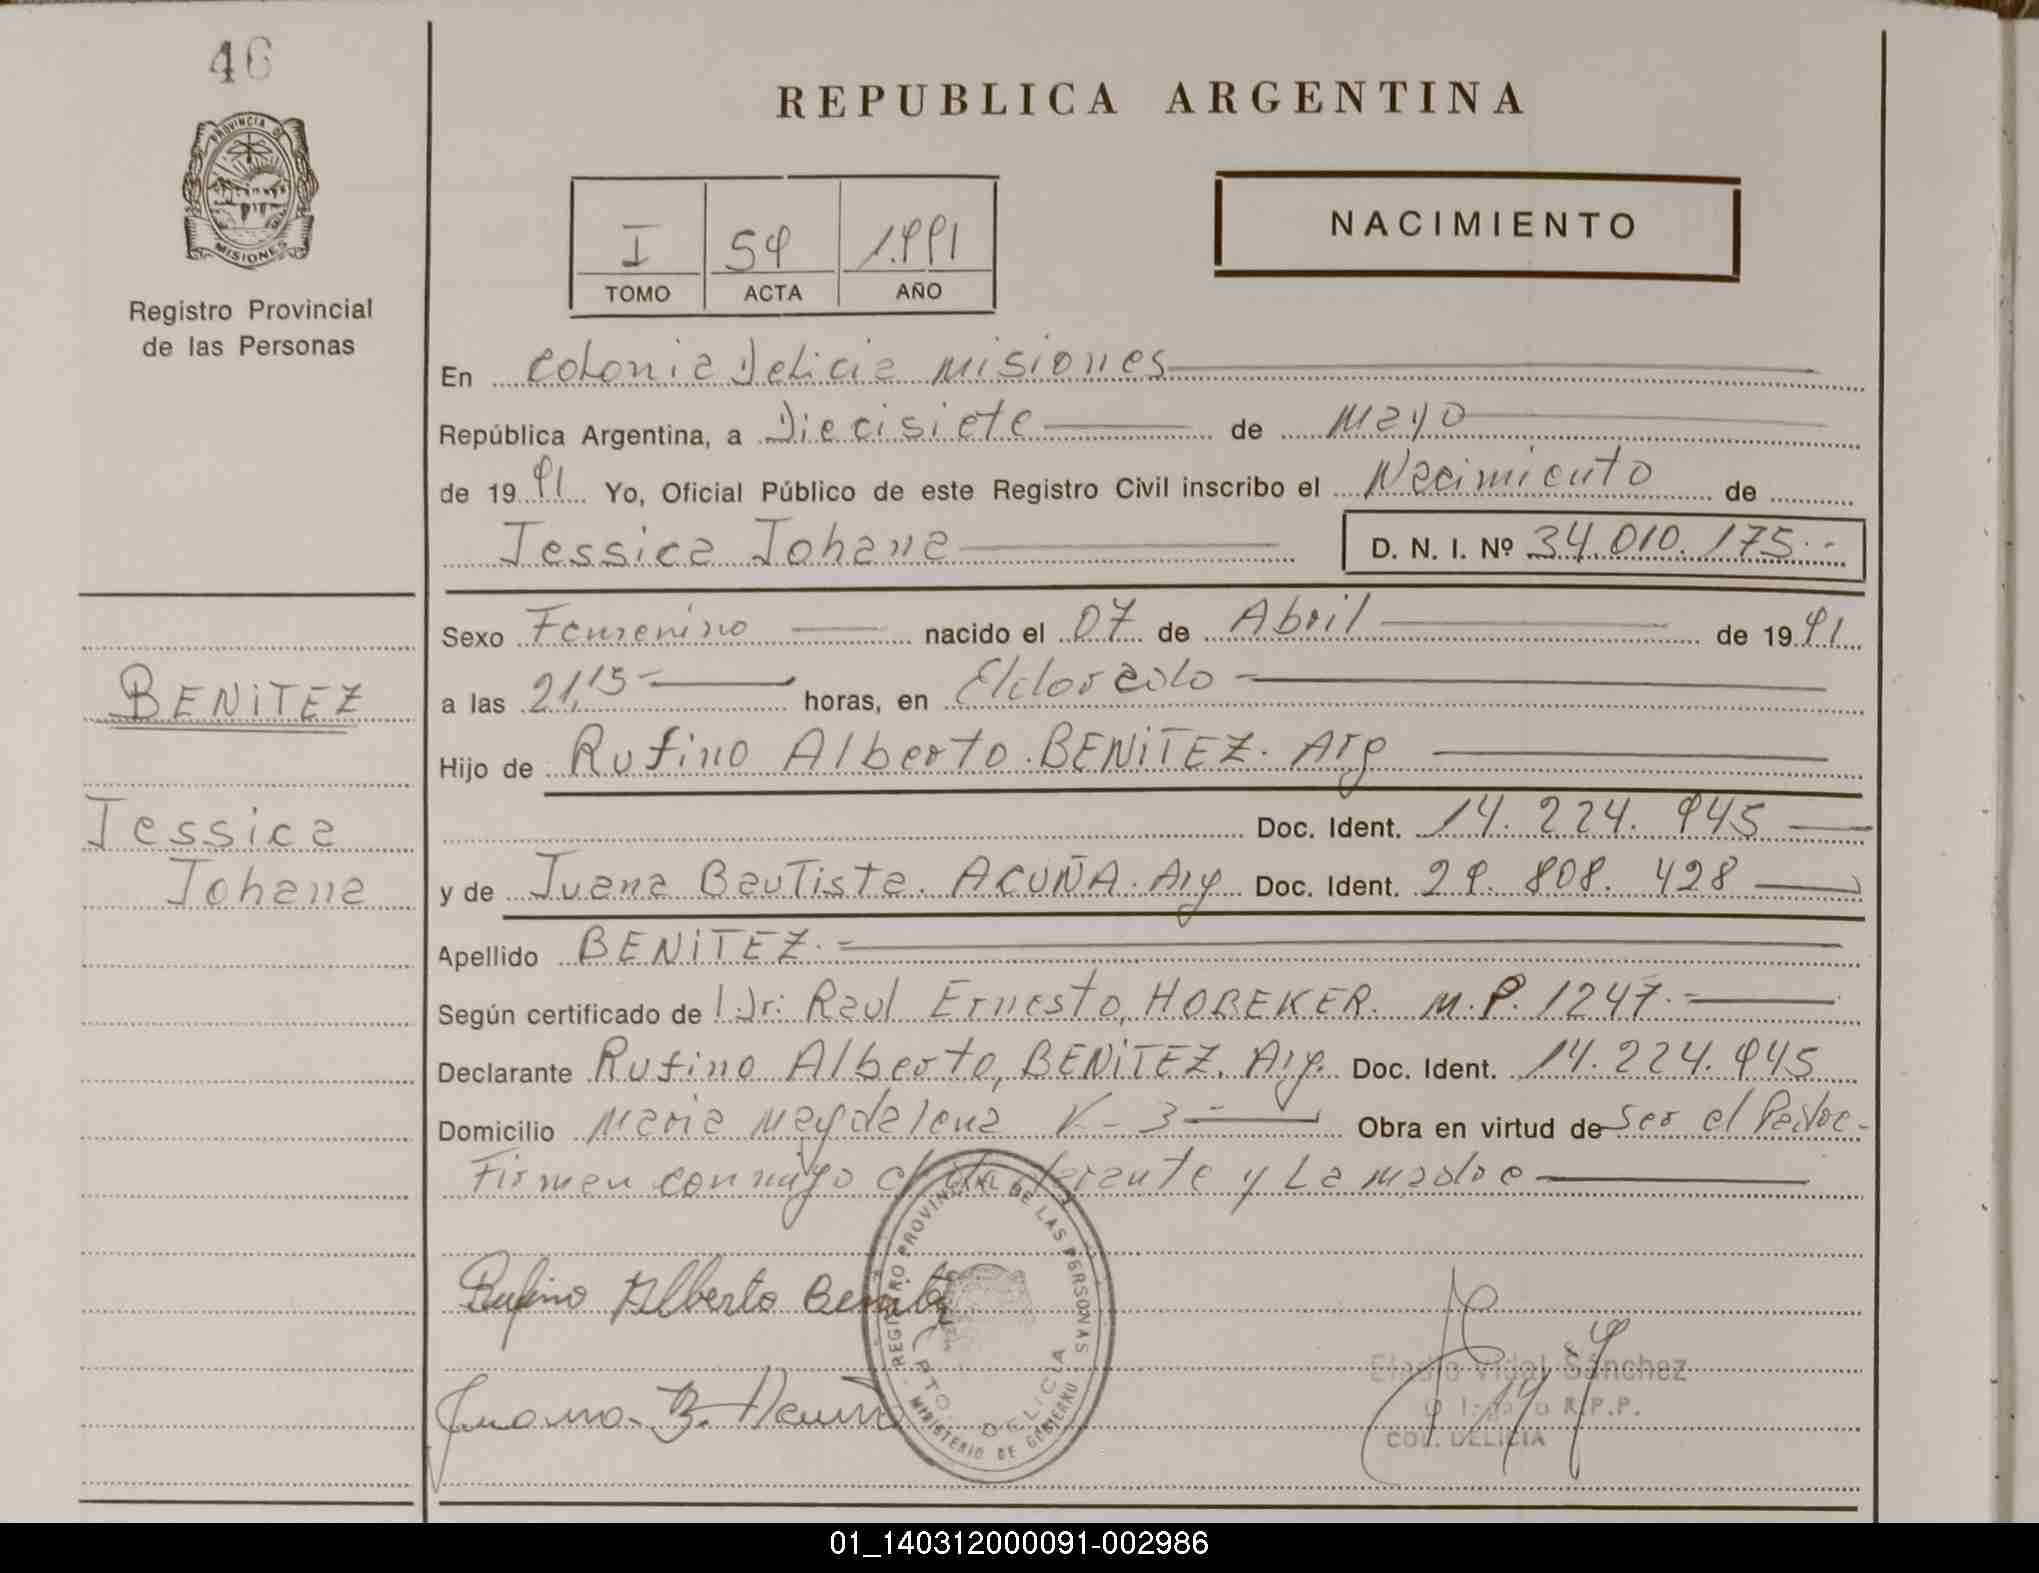 46
PROVINCIA DE
MISIONES
Registro Provincial
de las Personas
BENITEZ
Jessica
Johana
REPUBLICA ARGENTINA
I 59 1.991
TOMO ACTA AÑO
NACIMIENTO
En Colonia Delicia Misiones
República Argentina, a Diecisiete de Mayo
de 1991 Yo, Oficial Público de este Registro Civil inscribo el Nacimiento de
Jessica Johana D. N. I. Nº 34.010.175.-
Sexo Femenino nacido el 07 de Abril de 1991
a las 21,15 horas, en Eldorado
Hijo de Rufino Alberto BENITEZ. Arg
Doc. Ident. 14.224.945
y de Juana Bautista. ACUÑA. Arg Doc. Ident. 29.808.428
Apellido BENITEZ.-
Según certificado de Dr: Raul Ernesto, HOBEKER. M.P. 1247.-
Declarante Rufino Alberto, BENITEZ. Arg. Doc. Ident. 14.224.945
Domicilio Maria Magdalena K-3- Obra en virtud de ser el Padre-
Firman conmigo el y La madre
Rufino Alberto Benitez
Juana B. Acuña
REGISTRO PROVINCIAL DE LAS PERSONAS
PTO. DELICIA
MINISTERIO DE GOBIERNO
Eladio Vidal Sánchez
R.P.P.
COL. DELICIA
01_140312000091-002986